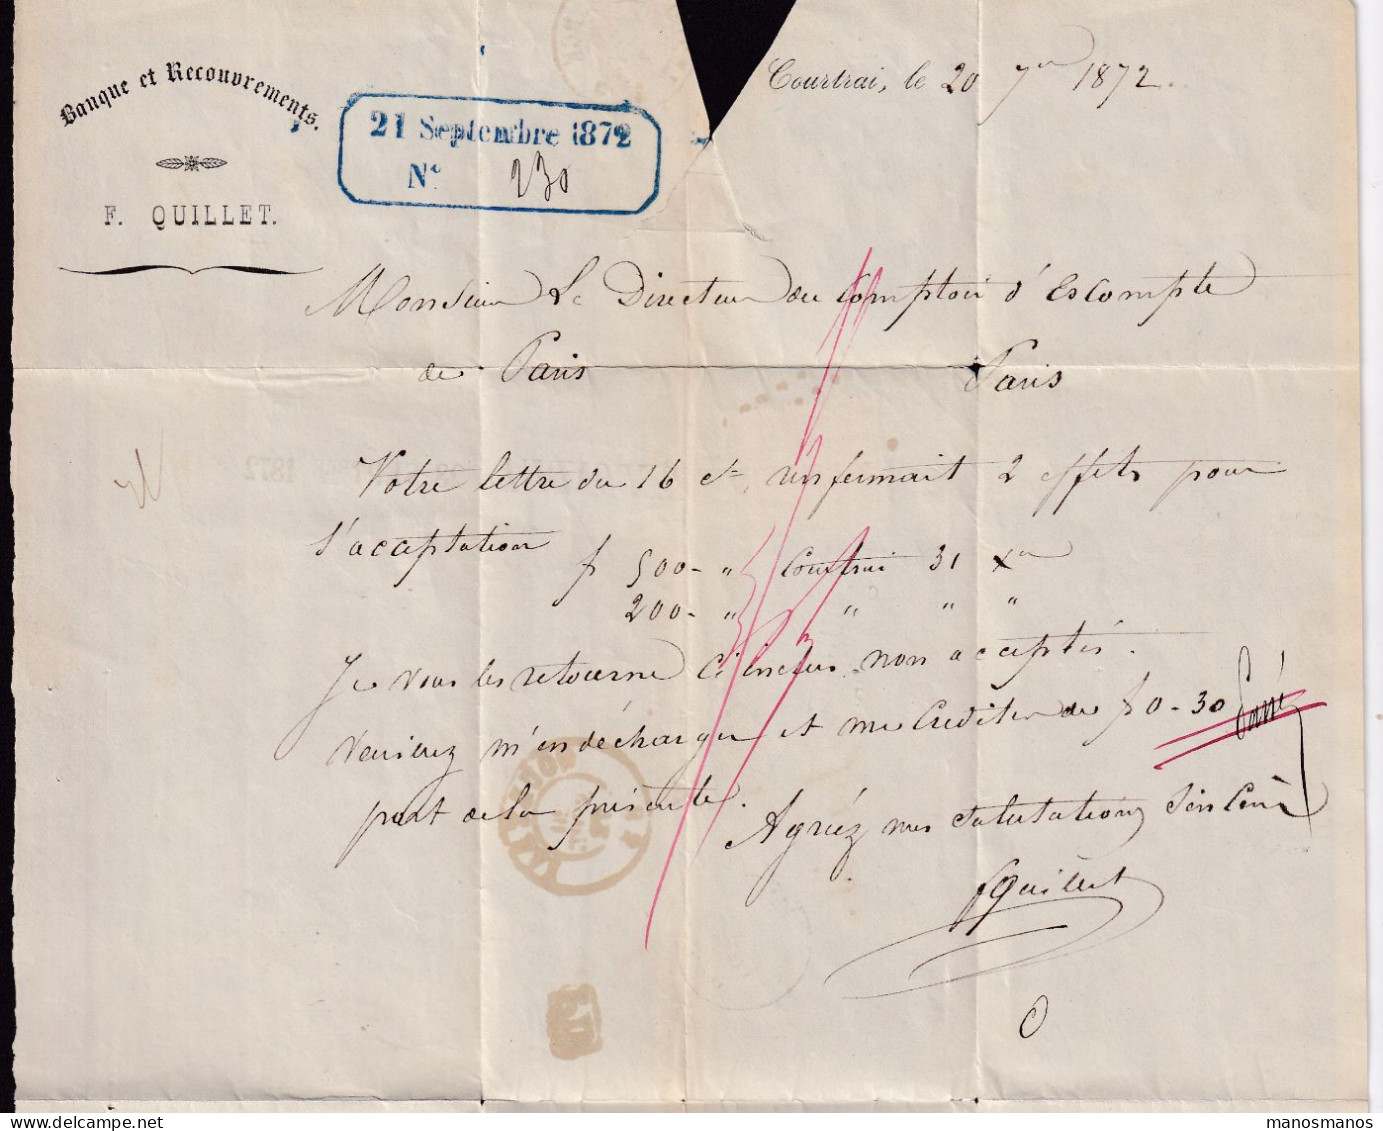 Banque et Recouvrements.
F. QUILLET.
21 Septembre 1872
N° 230
Courtrai, le 20 7re 1872.
Monsieur Le Directeur du Comptoir d'Escompte
de Paris Paris
Votre lettre du 16 ct, renfermait 2 effets pour
l'acceptation
f 500 - " Courtrai 31 Xre
200 - " " " "
Je vous les retourne ci inclus non acceptés.
Veuillez m'en décharger et me créditer de f 0-30
port de la présente.
Agréez mes salutations sincères
FQuillet
1872
manosmanos